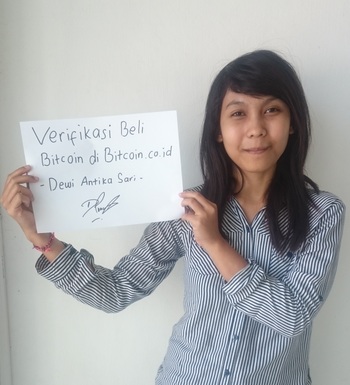 Verifikasi Beli
Bitcoin di Bitcoin.co.id
- Dewi Antika Sari -